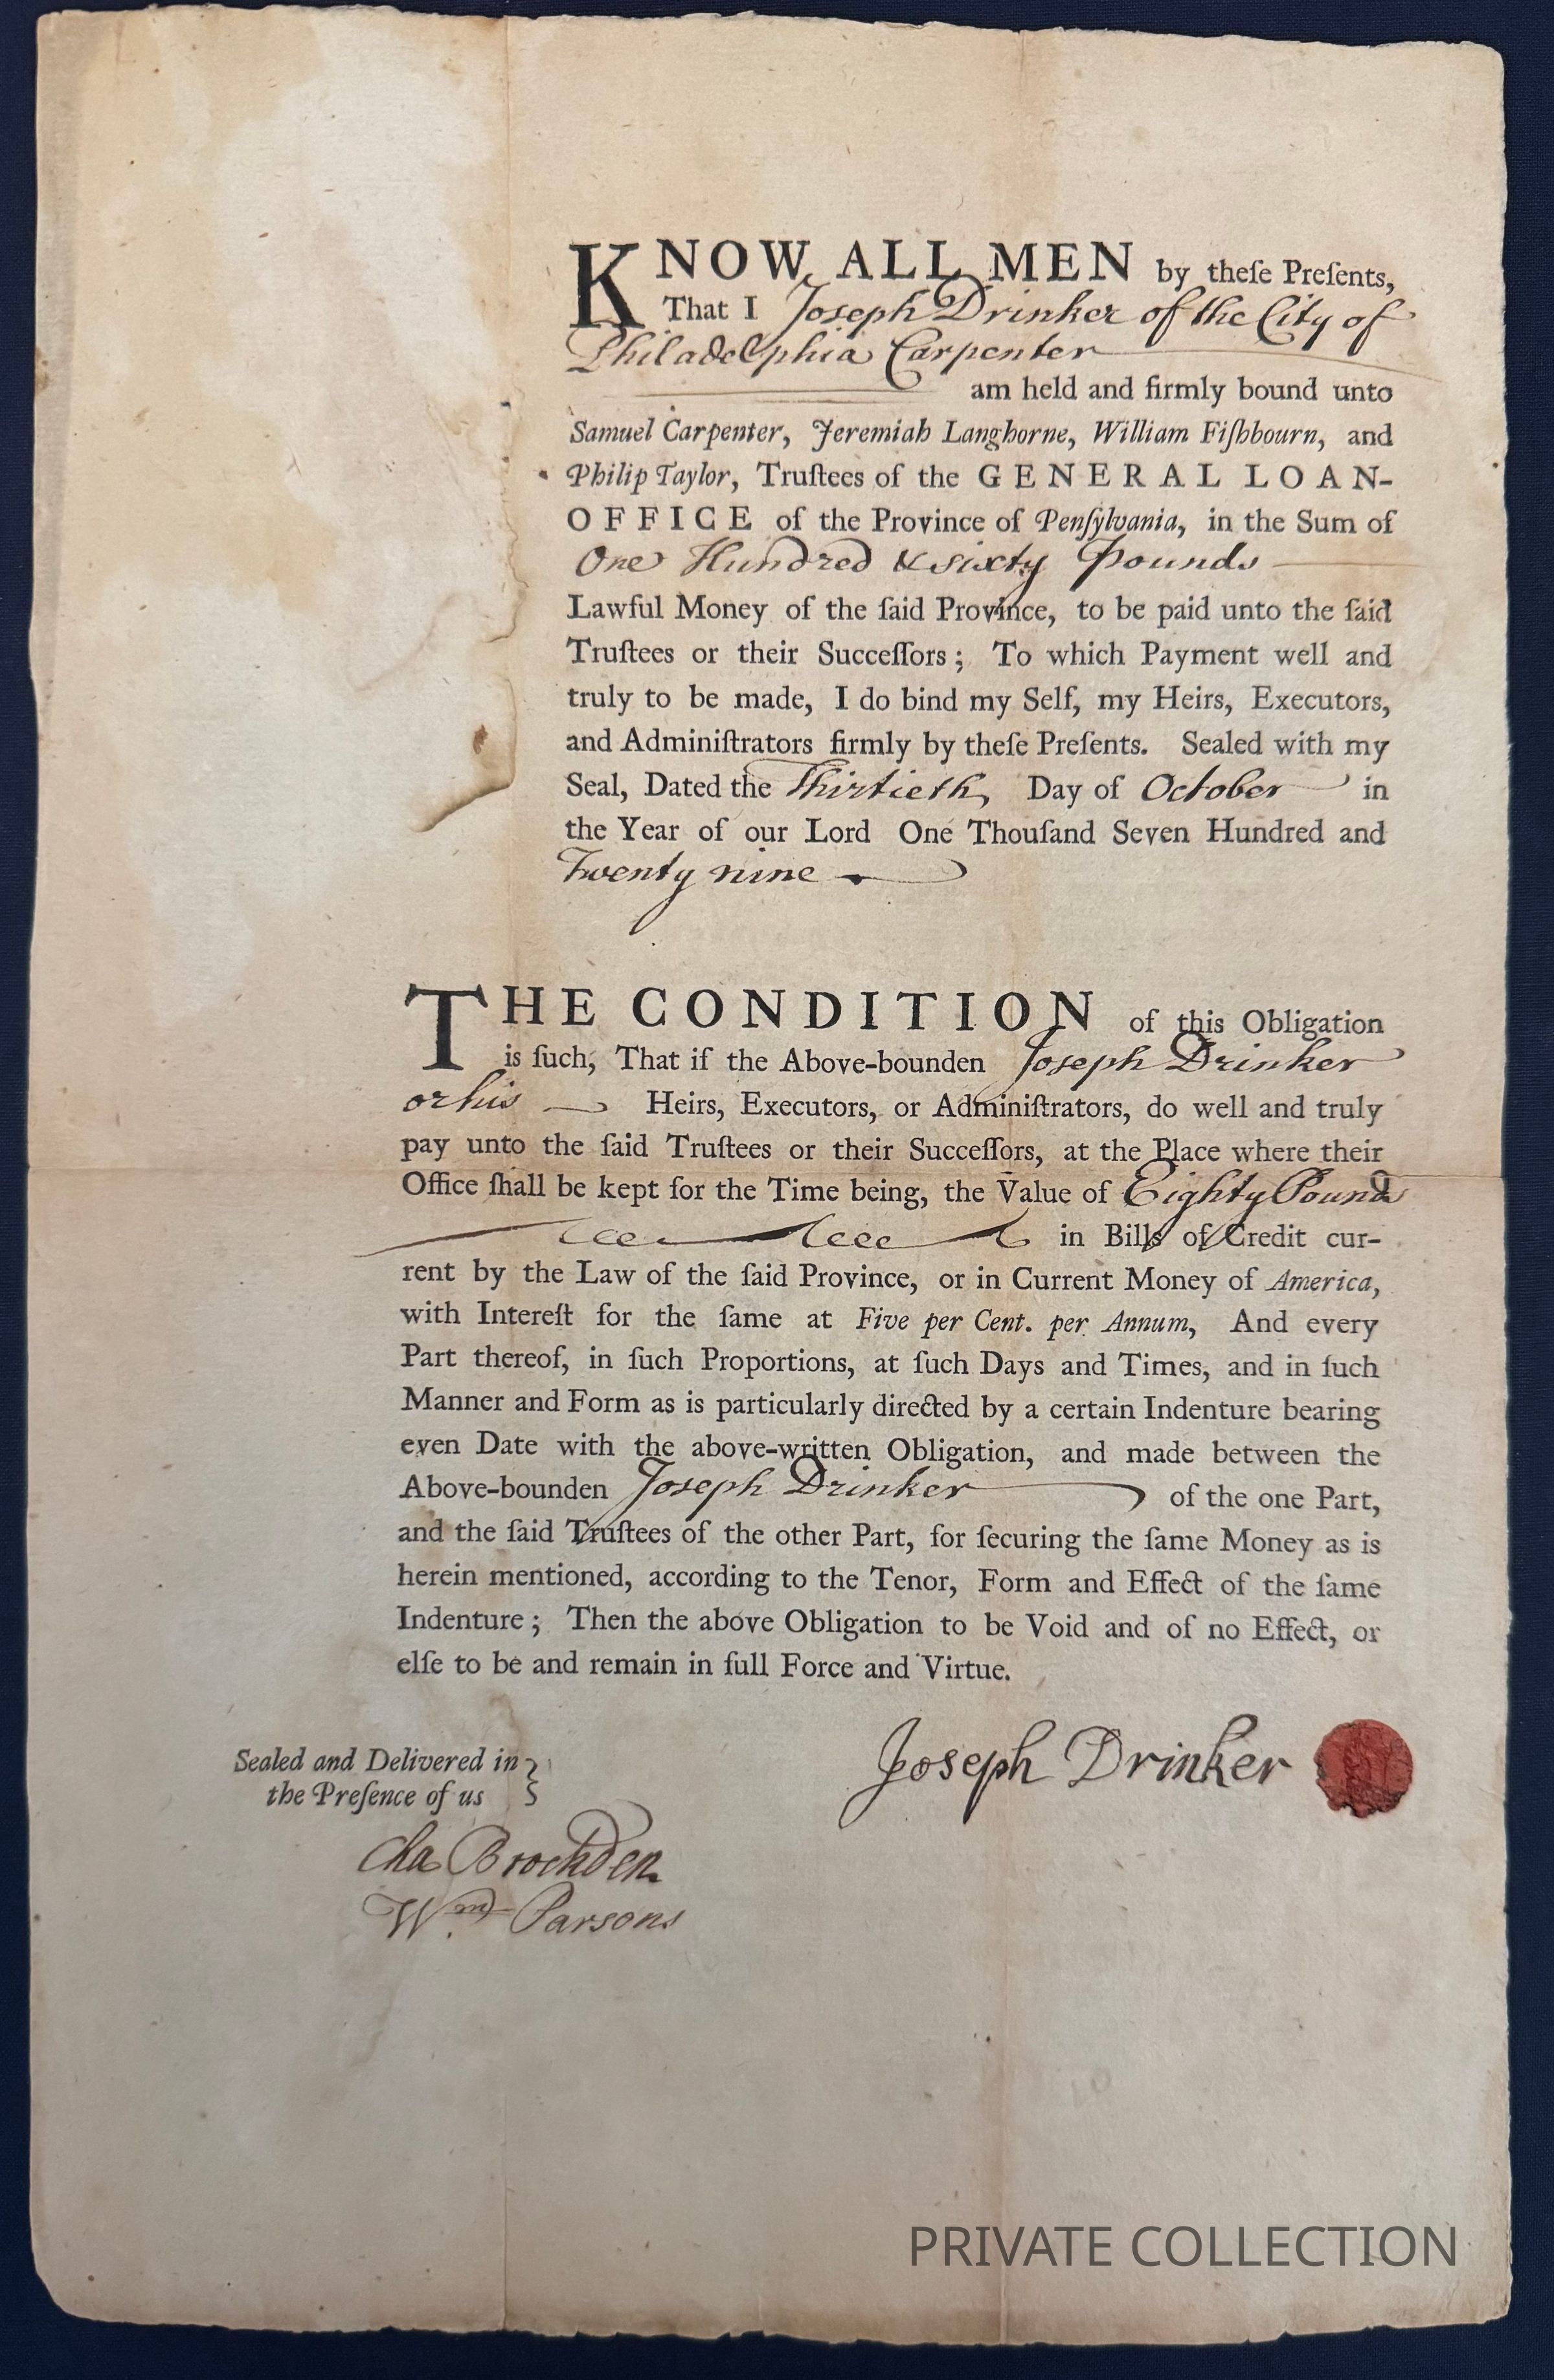 KNOW ALL MEN by theſe Preſents,
That I Joseph Drinker of the City of
Philadelphia Carpenter
am held and firmly bound unto
Samuel Carpenter, Jeremiah Langhorne, William Fiſhbourn, and
Philip Taylor, Truſtees of the GENERAL LOAN-
OFFICE of the Province of Penſylvania, in the Sum of
One Hundred & sixty Pounds
Lawful Money of the ſaid Province, to be paid unto the ſaid
Truſtees or their Succeſſors; To which Payment well and
truly to be made, I do bind my Self, my Heirs, Executors,
and Adminiſtrators firmly by theſe Preſents. Sealed with my
Seal, Dated the Thirtieth Day of October in
the Year of our Lord One Thouſand Seven Hundred and
Twenty nine
THE CONDITION of this Obligation
is ſuch, That if the Above-bounden Joseph Drinker
or his Heirs, Executors, or Adminiſtrators, do well and truly
pay unto the ſaid Truſtees or their Succeſſors, at the Place where their
Office ſhall be kept for the Time being, the Value of Eighty Pounds
in Bills of Credit cur-
rent by the Law of the ſaid Province, or in Current Money of America,
with Intereſt for the ſame at Five per Cent. per Annum, And every
Part thereof, in ſuch Proportions, at ſuch Days and Times, and in ſuch
Manner and Form as is particularly directed by a certain Indenture bearing
even Date with the above-written Obligation, and made between the
Above-bounden Joseph Drinker of the one Part,
and the ſaid Truſtees of the other Part, for ſecuring the ſame Money as is
herein mentioned, according to the Tenor, Form and Effect of the ſame
Indenture; Then the above Obligation to be Void and of no Effect, or
elſe to be and remain in full Force and Virtue.
Sealed and Delivered in
the Preſence of us
Joseph Drinker
Cha Brockden
Wm Parsons
PRIVATE COLLECTION